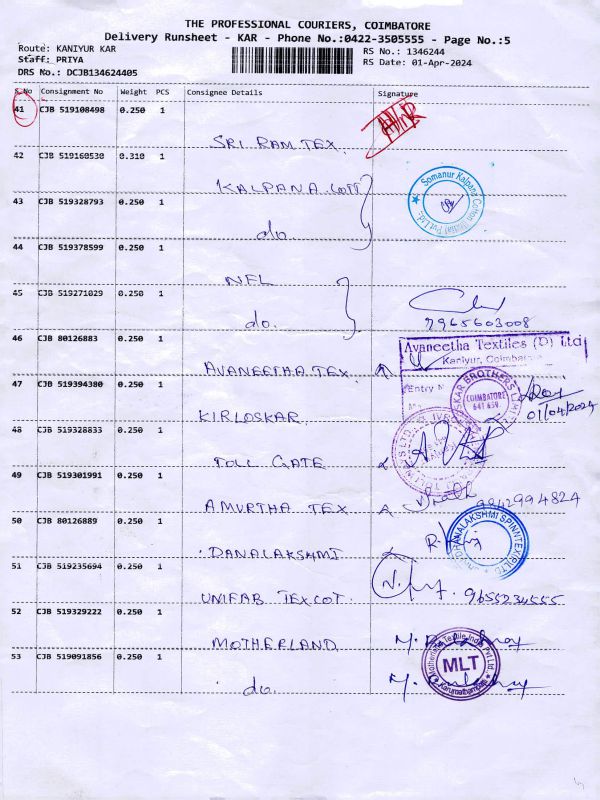 THE PROFESSIONAL COURIERS, COIMBATORE
Delivery Runsheet - KAR - Phone No.:0422-3505555 - Page No.:5
Route: KANIYUR KAR
RS No.: 1346244
Staff: PRIYA
RS Date: 01-Apr-2024
DRS No.: DCJB134624405
S.No Consignment No Weight PCS Consignee Details Signature
41 CJB 519108498 0.250 1
SRI RAM TEX.
42 CJB 519160530 0.310 1
KALPANA COTT
Somanur Kalpana Cotton Pvt Ltd.
43 CJB 519328793 0.250 1
do
44 CJB 519378599 0.250 1
NFL
45 CJB 519271029 0.250 1
do.
7965603008
46 CJB 80126883 0.250 1
Avaneetha Textiles (P) Ltd
Kaniyur, Coimbatore
AVANEETHA TEX.
47 CJB 519394380 0.250 1
Entry N
KIRLOSKAR BROTHERS LIMITED
COIMBATORE
641 659
01/04/2024
KIRLOSKAR
48 CJB 519328833 0.250 1
TOLL GATE
49 CJB 519301991 0.250 1
AMURTHA TEX
9842994824
50 CJB 80126889 0.250 1
DANALAKSHMI
DHANALAKSHMI SPINNTEX (P) LTD
51 CJB 519235694 0.250 1
UNIFAB TEXCOT.
9655234555
52 CJB 519329222 0.250 1
MOTHERLAND
Motherland Textile India Pvt Ltd.
MLT
Karumathampatti
53 CJB 519091856 0.250 1
do.